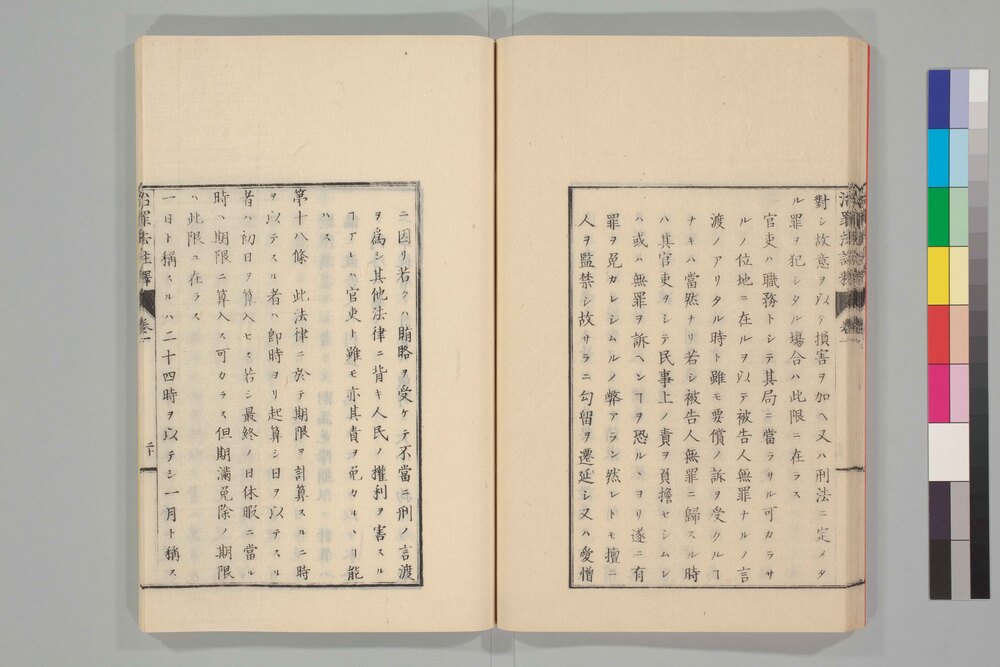 對シ故意ヲ以テ損害ヲ加ヘ又ハ刑法ニ定メタ
ル罪ヲ犯シタル塲合ハ此限ニ在ラス
官吏ハ職務トシテ其局ニ當ラサル可カラサ
ルノ位地ニ在ルヲ以テ被告人無罪ナルノ言
渡ノアリタル時ト雖モ要償ノ訴ヲ受クルヿ
ナキハ當然ナリ若シ被告人無罪ニ歸スル時
ハ其官吏ヲシテ民事上ノ責ヲ負擔セシムレ
ハ或ハ無罪ヲ訴ヘンヿヲ恐ルヽヨリ遂ニ有
罪ヲ免カレシムルノ弊アラン然レトモ擅ニ
人ヲ監禁シ故サラニ勾留ヲ遷延シ又ハ愛憎
ニ因リ若クハ賄賂ヲ受ケテ不當ニ刑ノ言渡
ヲ爲シ其他法律ニ背キ人民ノ權利ヲ害スル
ヿアレハ官吏ト雖モ亦其責ヲ免カルヽヿ能
ハス
第十八條 此法律ニ於テ期限ヲ計算スルニ時
ヲ以テスル者ハ即時ヨリ起算シ日ヲ以テスル
者ハ初日ヲ算入セス若シ最終ノ日休暇ニ當ル
時ハ期限ニ算入ス可カラス但期滿免除ノ期限
ハ此限ニ在ラス
一日ト稱スルハ二十四時ヲ以テシ一月ト稱ス
治罪法註釋 卷一 二十